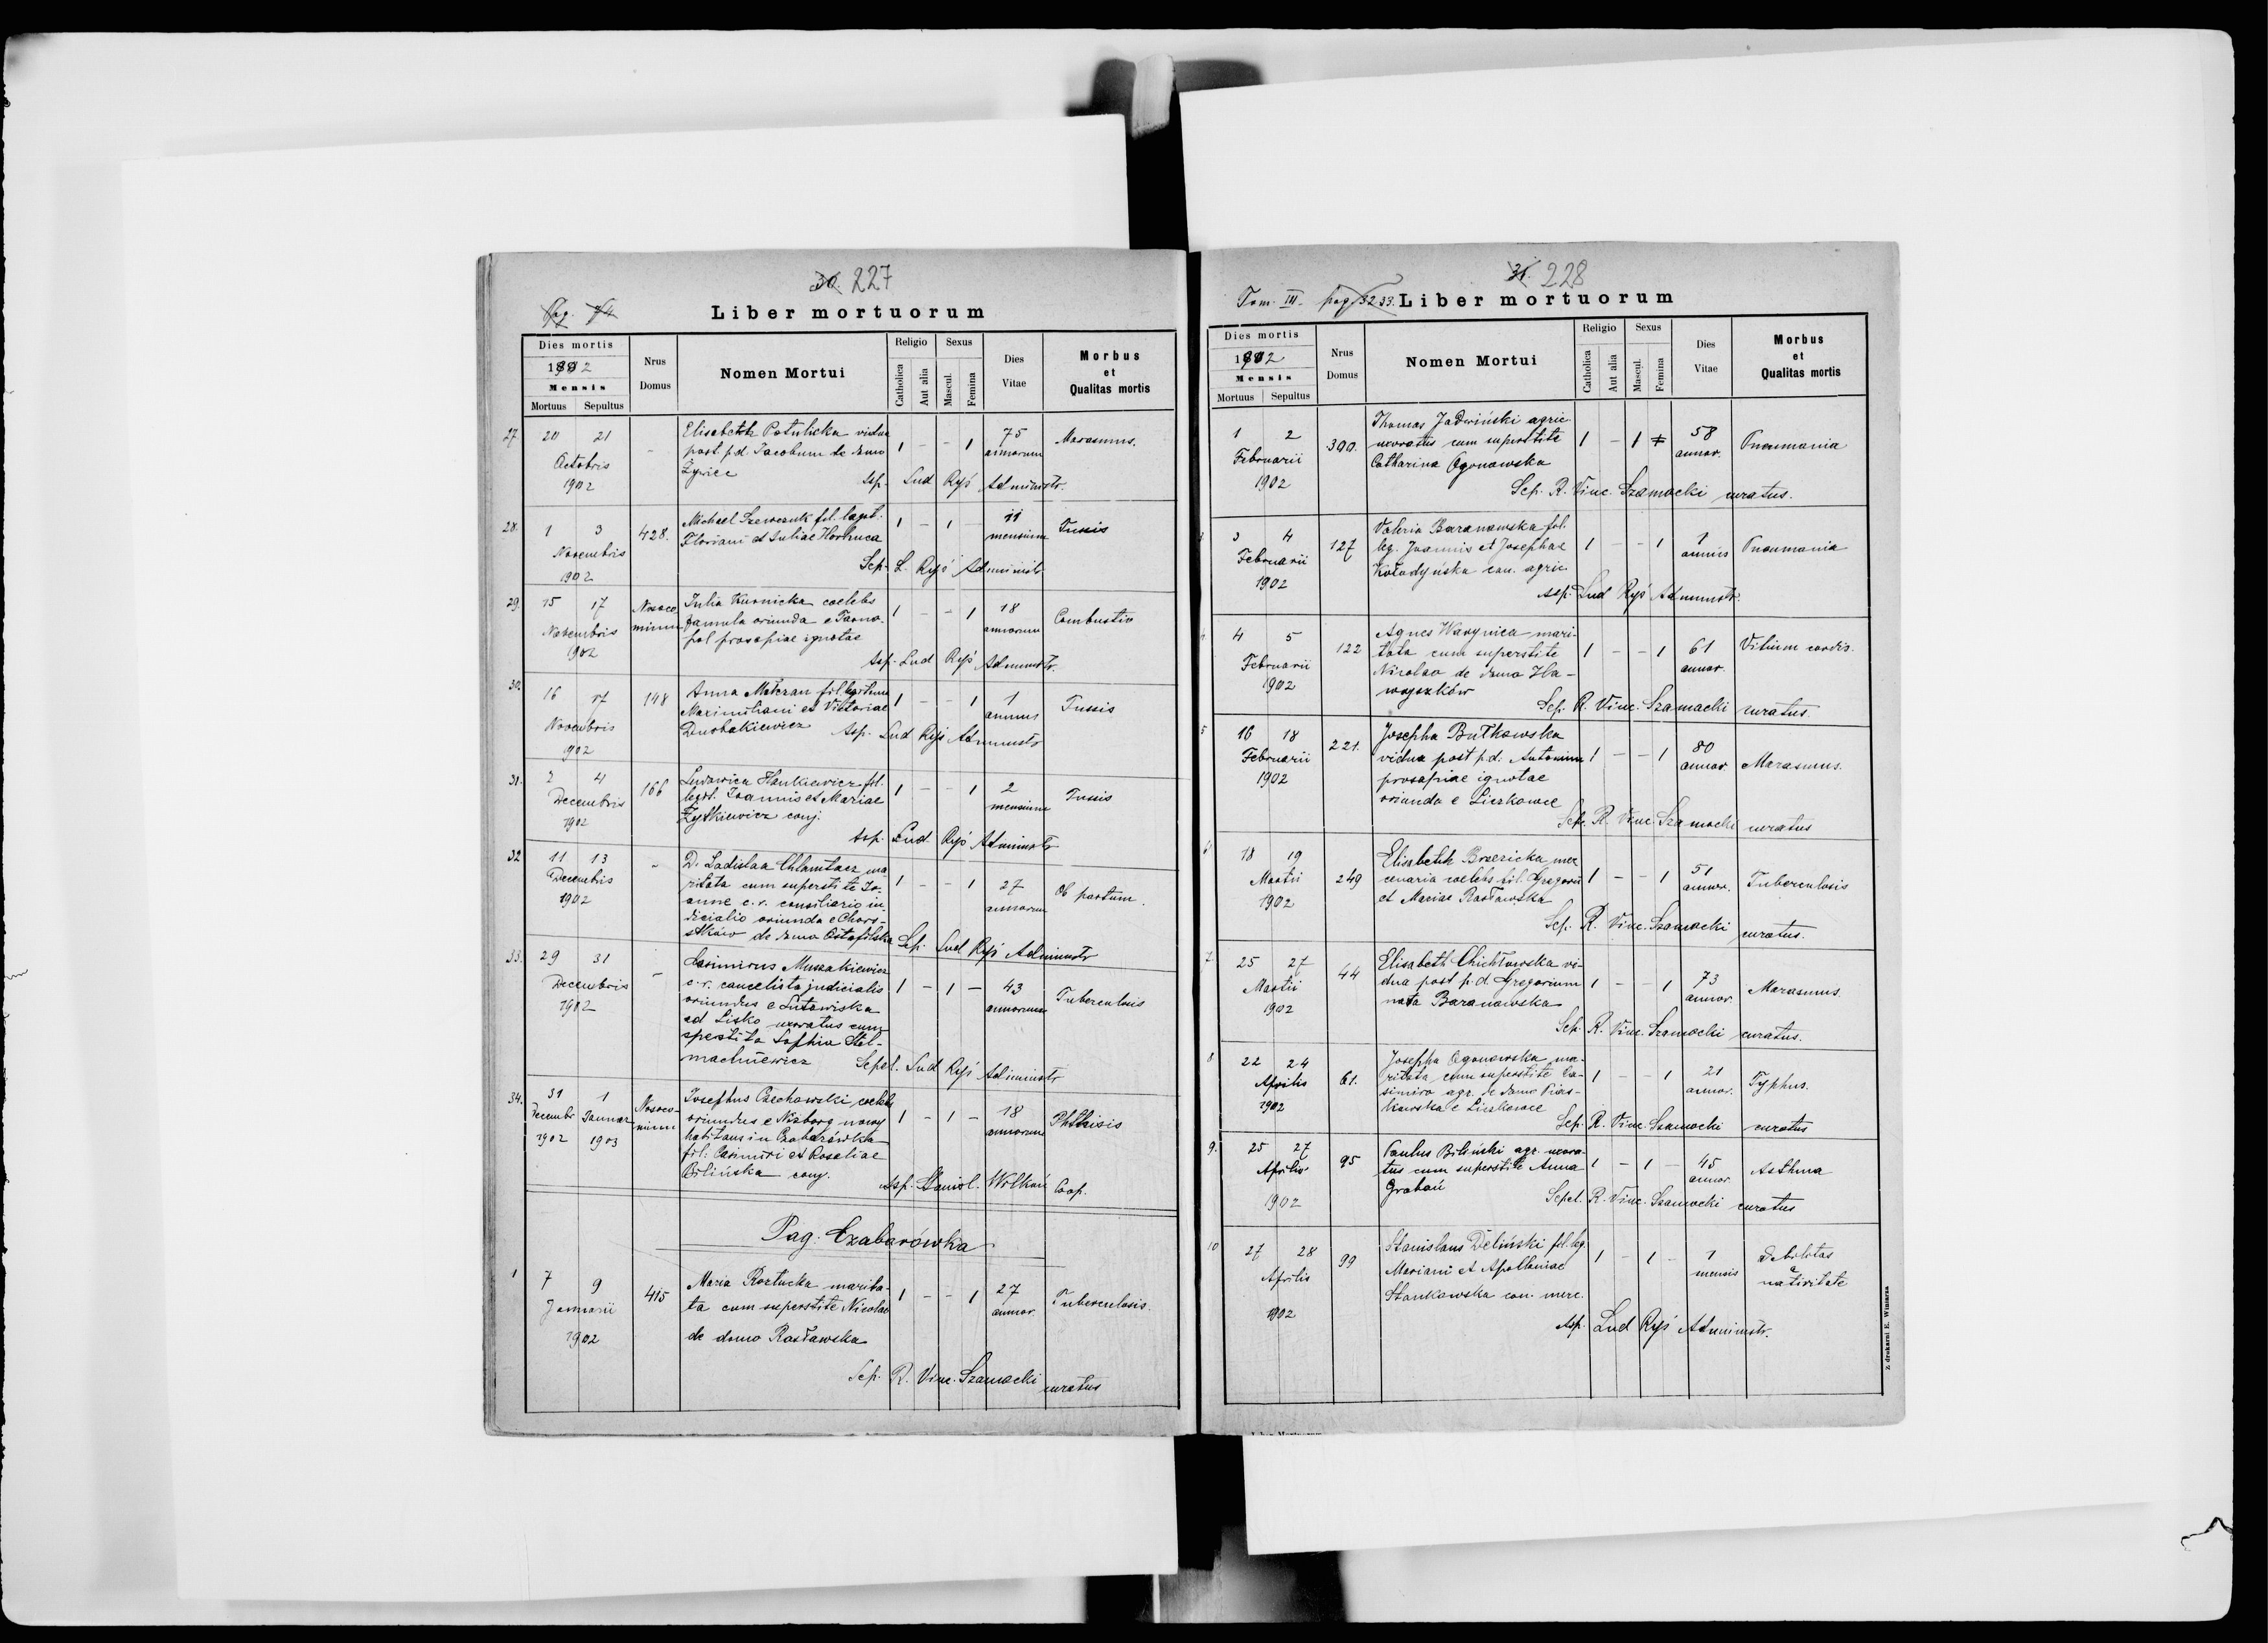 30. 227
Pag.
Liber mortuorum
Dies mortis
1902
Mensis
Mortuus Sepultus
Nrus Domus
Nomen Mortui
Religio
Catholica
Aut alia
Sexus
Mascul.
Femina
Dies Vitae
Morbus et Qualitas mortis
27. 20 21 - Elisabeth Potulicka vidua 1 - - 1 75 Marasmus.
Octobris post p.d. Jacobum de domo annorum
1902 Żyriec
Asp. Lud Ryś Administr.
28. 1 3 428. Michael Szewczuk fil. legit. 1 - 1 - 11 Tussis
Novembris Floriani et Juliae mensium
1902
Sep. L. Ryś Administr.
29. 15 17 Nosoco- Julia Kurnicka coelebs 1 - - 1 18 Combustio
Novembris mium famula oriunda e Tarno- annorum
1902 pol prosapiae ignotae
Asp. Lud Ryś Administr.
30. 16 17 148 Anna Materan fil. legitima 1 - - 1 1 Tussis
Novembris Maximiliani et Victoriae annus
1902 Durbakiewicz
Asp. Lud Ryś Administr
31. 2 4 166 Ludovica Hankiewicz fil. 1 - - 1 2 Tussis
Decembris legit. Joannis et Mariae mensium
1902 Żytkiewicz conj.
Asp. Lud Ryś Administr
32 11 13 - D. Ladislaa ma- 1 - - 1 27 Ob partum.
Decembris ritata cum superstite Jo- annorum
1902 anne c.r. consiliario iu-
diciali oriunda e Choro-
stków de domo Ostafilska
Sep. Lud Ryś Administr
33. 29 31 - Casimirus Muszakiewicz 1 - 1 - 43 Tuberculosis
Decembris c.r. cancelista judicialis annorum
1902 oriundus e Lutowiska
ad Lisko uxoratus cum
spestita Sophia Stel-
machiewicz
Sepel. Lud Ryś Administr
34. 31 1 Nosoco- Josephus Czechowski coelebs 1 - 1 - 18 Phthisis
Decembr Januar mium oriundus e Niżborg nowy annorum
1902 1903 habitans in Czabarówka
fil: Casimiri et Rosaliae
Bilińska conj.
Asp. Stanisl. Wolkań Coop.
Pag. Czabarówka
1 7 9 415 Maria Roztucka marita- 1 - - 1 27 Tuberculosis.
Januarii ta cum superstite Nicolao annor.
1902 de domo Rosławska
Sep. R. Vinc. Szamocki curatus
31. 228
Tom. III. pag. 32.33.
Liber mortuorum
Dies mortis
1902
Mensis
Mortuus Sepultus
Nrus Domus
Nomen Mortui
Religio
Catholica
Aut alia
Sexus
Mascul.
Femina
Dies Vitae
Morbus et Qualitas mortis
1 2 300. Thomas Jadwiński agric. 1 - 1 58 Pneumonia
Februarii uxoratus cum superstite annor.
1902 Catharina Ogonowska
Sep. R. Vinc. Szamocki curatus.
3 3 4 127 Valeria Baranowska fil. 1 - - 1 1 Pneumonia
Februarii leg. Joannis et Josephae annus
1902 Kołodyńska con. agric.
Asp. Lud Ryś Administr.
4 4 5 122 Agnes Warynica mari- 1 - - 1 61 Vitium cordis.
Februarii tata cum superstite annor.
1902 Nicolao de domo Ha-
wryszków
Sep. R. Vinc. Szamocki curatus.
5 16 18 221. Josepha Butkowska 1 - - 1 80 Marasmus.
Februarii vidua post p.d. Antonium annor.
1902 prosapiae ignotae
oriunda e Liczkowce
Sep. R. Vinc. Szamocki curatus
6 18 19 249 Elisabeth Brzezicka mer- 1 - - 1 51 Tuberculosis
Martii cenaria coelebs fil. Gregorii annor.
1902 et Mariae Rosławska
Sep. R. Vinc. Szamocki curatus.
7 25 27 44 Elisabeth Chichłowska vi- 1 - - 1 73 Marasmus.
Martii dua post p.d. Gregorium annor.
1902 nata Baranowska
Sep. R. Vinc. Szamocki curatus.
8 22 24 61. Josepha Ogonowska ma- 1 - - 1 21 Typhus.
Aprilis ritata cum superstite Ca- annor.
1902 simiro agr. de domo
kowska e Liczkowce
Sep. R. Vinc. Szamocki curatus
9. 25 27 95 Paulus Biliński agr. uxora- 1 - 1 - 45 Asthma
Aprilis tus cum superstite Anna annor.
1902 Grabań
Sepel. R. Vinc. Szamocki curatus
10 27 28 99 Stanislaus Deliński fil. leg. 1 - 1 - 1 Debilitas
Aprilis Mariani et Apolloniae mensis a nativitate
1902 Stankowska con. merc.
Asp. Lud Ryś Administr.
Z drukarni E. Winiarza